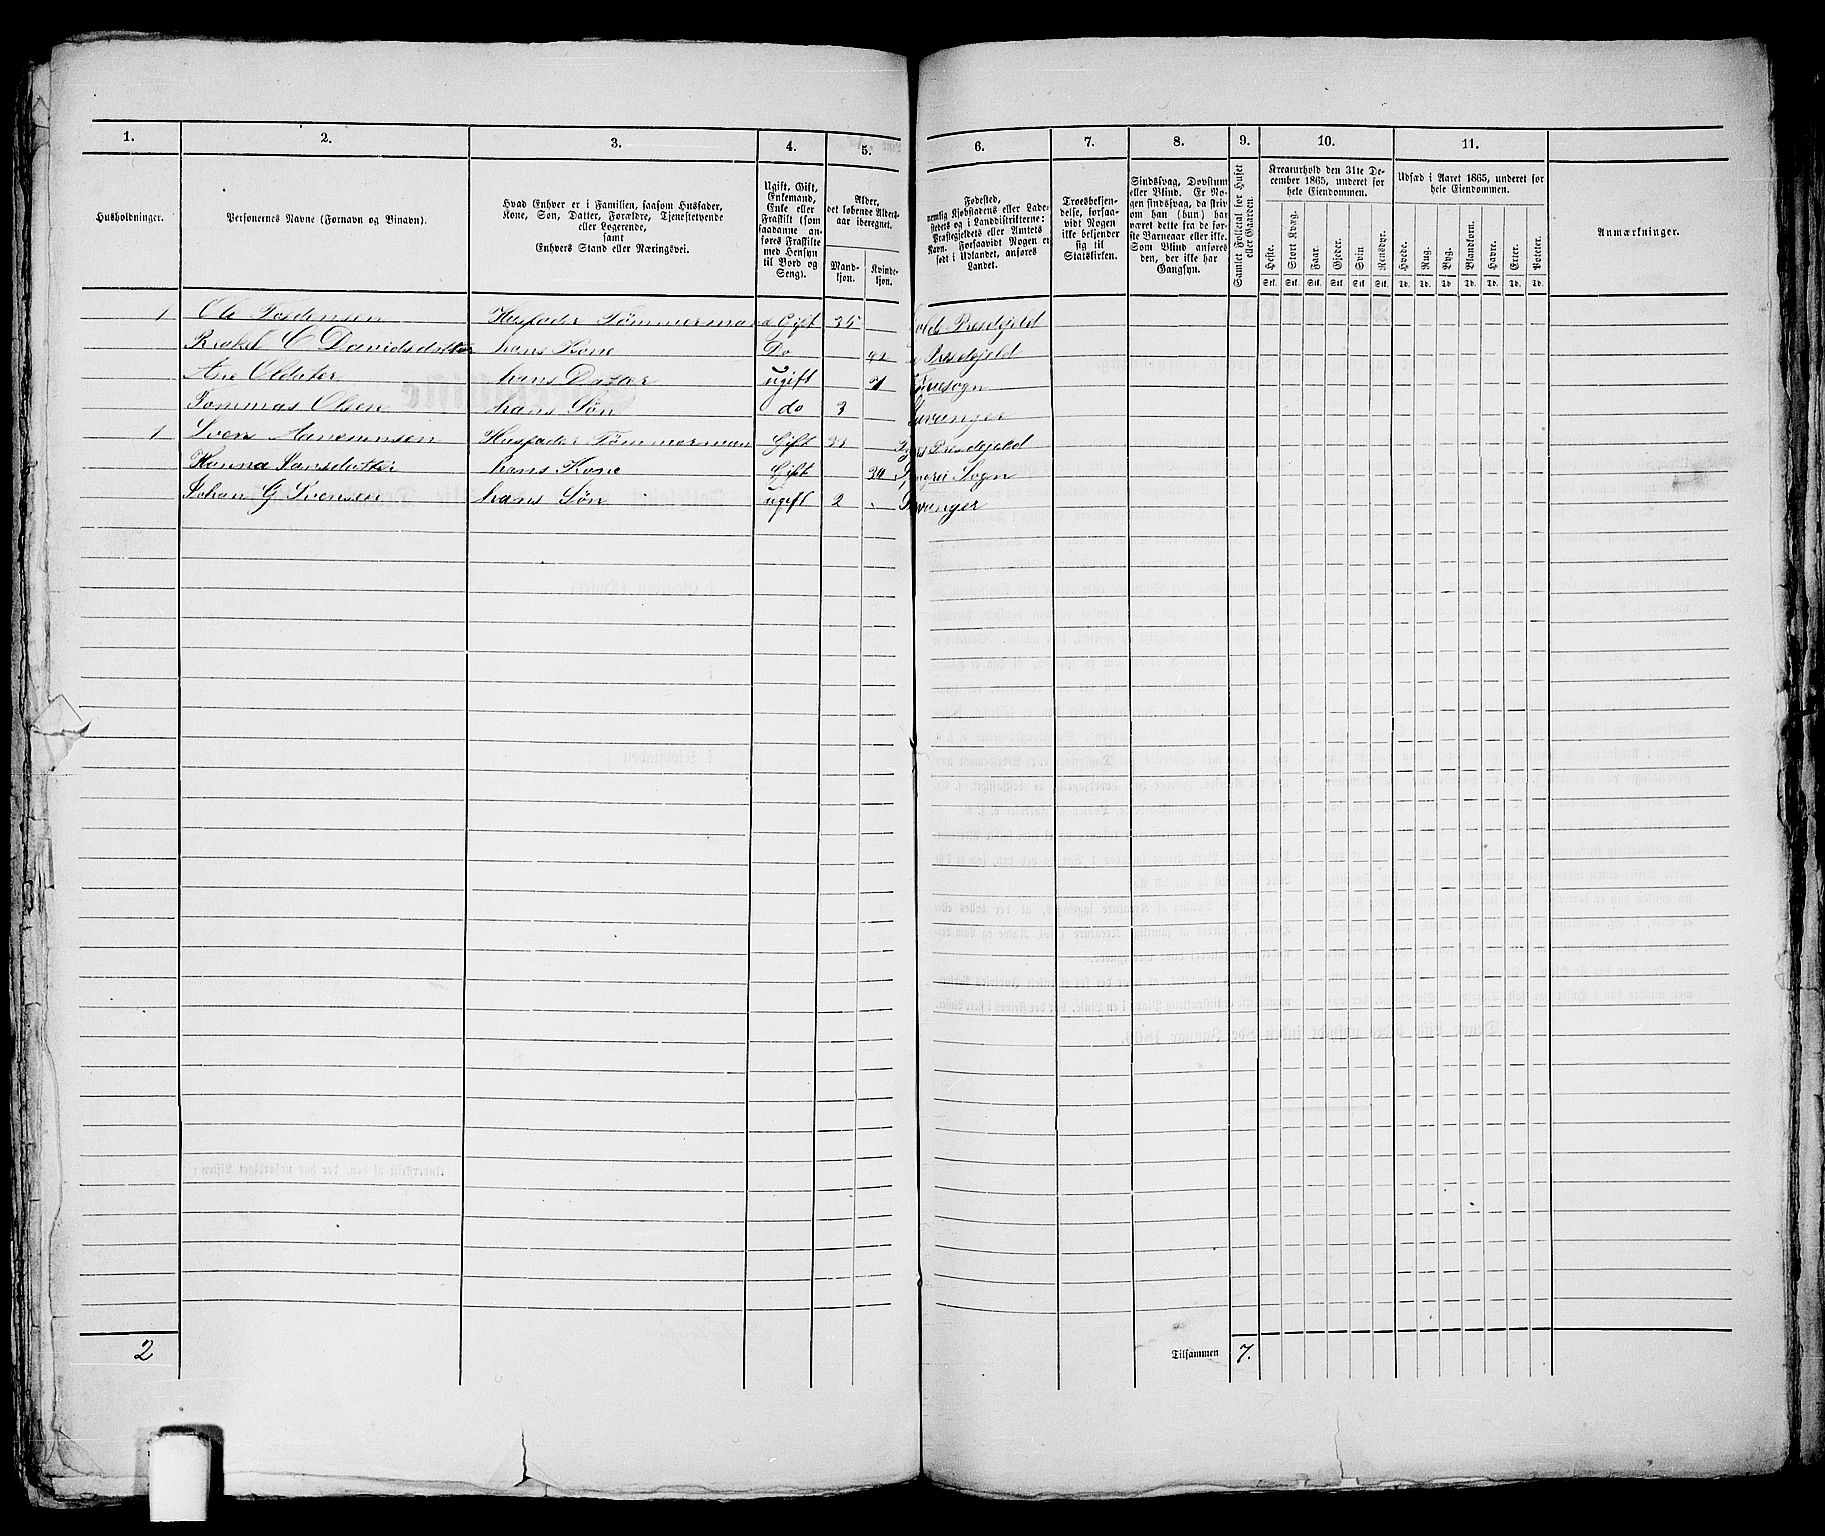 1. 2. 3. 4. 5. 6. 7. 8. 9. 10. 11.
Husholdninger.
Personernes Navne (Fornavn og Binavn).
Hvad Enhver er i Familien, saasom Husfader,
Kone, Søn, Datter, Forældre, Tjenestetyende
eller Logerende,
samt
Enhvers Stand eller Næringsvei.
Ugift, Gift,
Enkemand,
Enke eller
Fraskilt (som
saadanne an-
føres Fraskilte
med Hensyn
til Bord og
Seng).
Alder,
det løbende Alders-
aar iberegnet.
Mand-
kjøn.
Kvinde-
kjøn.
Fødested,
nemlig Kjøbstadens eller Lade-
stedets og i Landdistrikterne:
Præstegjeldets eller Amtets
Navn. Forsaavidt Nogen er
født i Udlandet, anføres
Landet.
Troesbekjen-
delse, forsaa-
vidt Nogen
ikke bekjender
sig til
Statskirken.
Sindssvag, Døvstum
eller Blind. Er No-
gen sindssvag, da skriv
om han (hun) har
været dette fra de før-
ste Barneaar eller ikke.
Som Blind anføres
den, der ikke har
Gangsyn.
Samlet Folketal for Huset
eller Gaarden.
Kreaturhold den 31te De-
cember 1865, underet for
hele Eiendommen.
Heste. Stort Kvæg. Faar. Gjeder. Svin Rensdyr.
Stk. Stk. Stk. Stk. Stk. Stk.
Udsæd i Aaret 1865, underet for
hele Eiendommen.
Hvede. Rug. Byg. Blandkorn. Havre. Erter. Poteter.
Td. Td. Td. Td. Td. Td. Td.
Anmærkninger.
1 Ole Husfader Tømmermand Gift 35 Presdgjeld
C Davidsdatter hans Kone Do Presdgjeld
Ane hans Datter ugift
Tommas Olsen hans Søn do 3 Stavanger
1 Sven Husfader Tømmerman Gift Presdgjeld
Hanna hans Kone Gift Sogn
Johan G Svensen hans Søn ugift 2 Stavanger
2 Tilsammen 7.